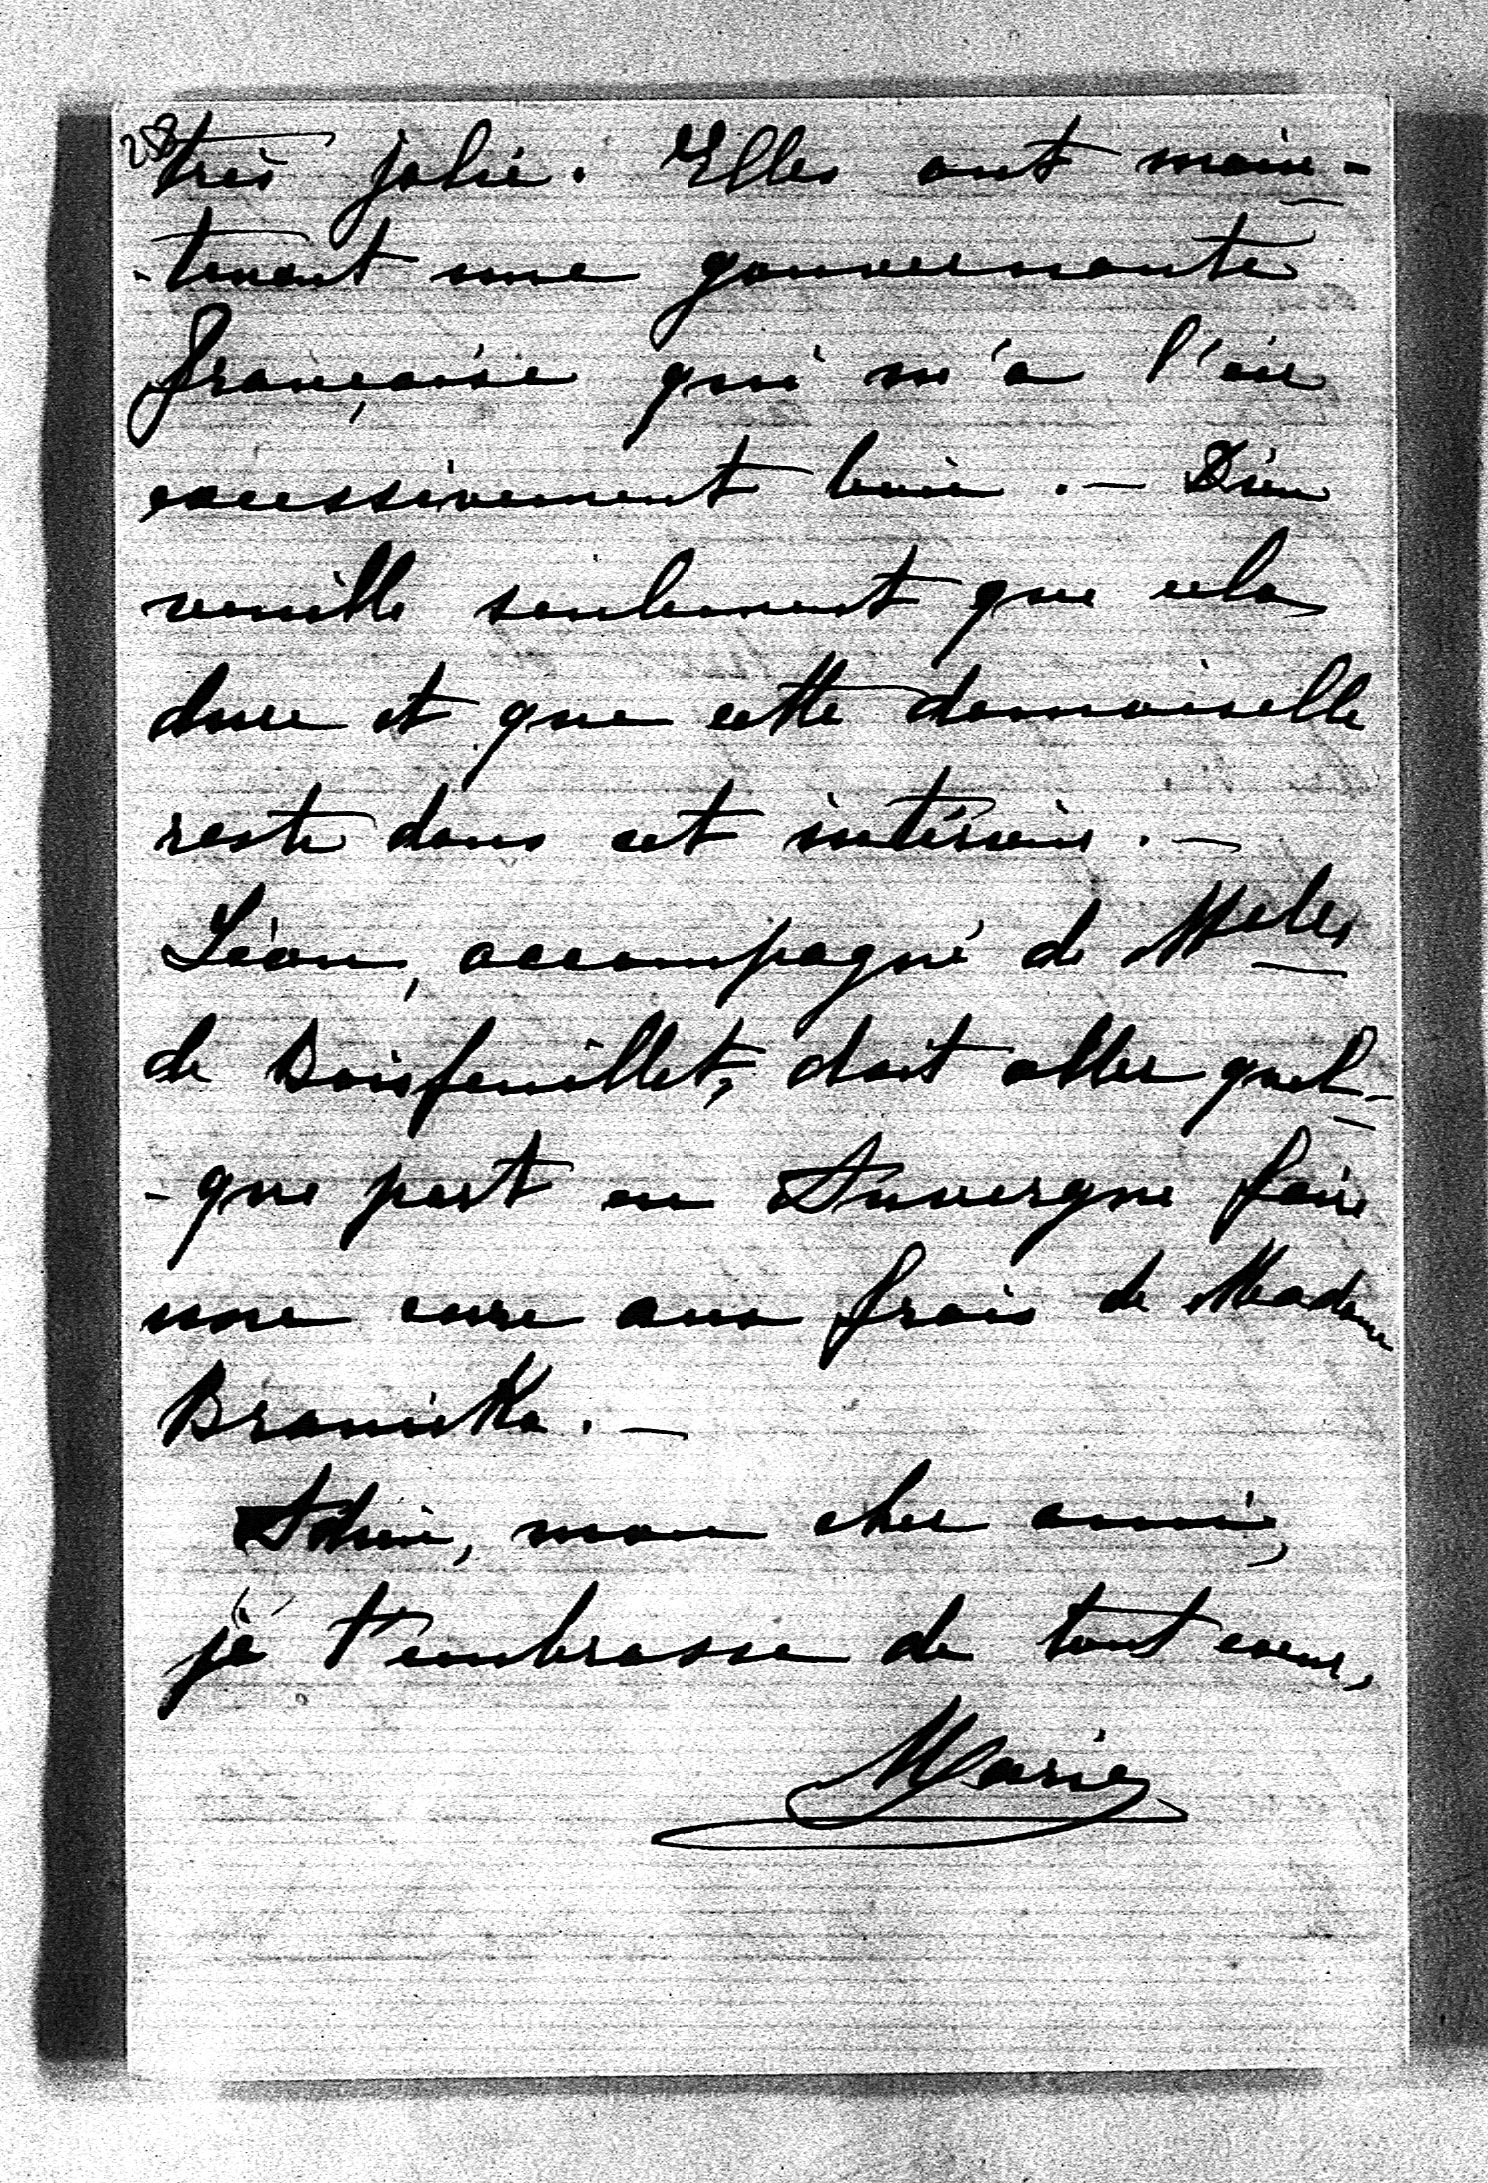 258
très jolie. Elles ont main-
-tenant une gouvernante
française qui m'a l'air
excessivement bien. — Dieu
veuille seulement que cela
dure et que cette demoiselle
reste dans cet intérieur. —
Léon, accompagné de Melles
de Boisfeuillet, doit aller quel-
-que part en Auvergne faire
une cure aux frais de Madame
Branicka. —
Adieu, mon cher ami,
je t'embrasse de tout coeur,
Marie